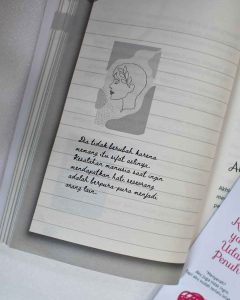 Dia tidak berubah karena
memang itu sifat aslinya.
Kesalahan manusia saat ingin
mendapatkan hati seseorang
adalah berpura-pura menjadi
orang lain.
A
Akhi
K
ya
Uda
Penuk